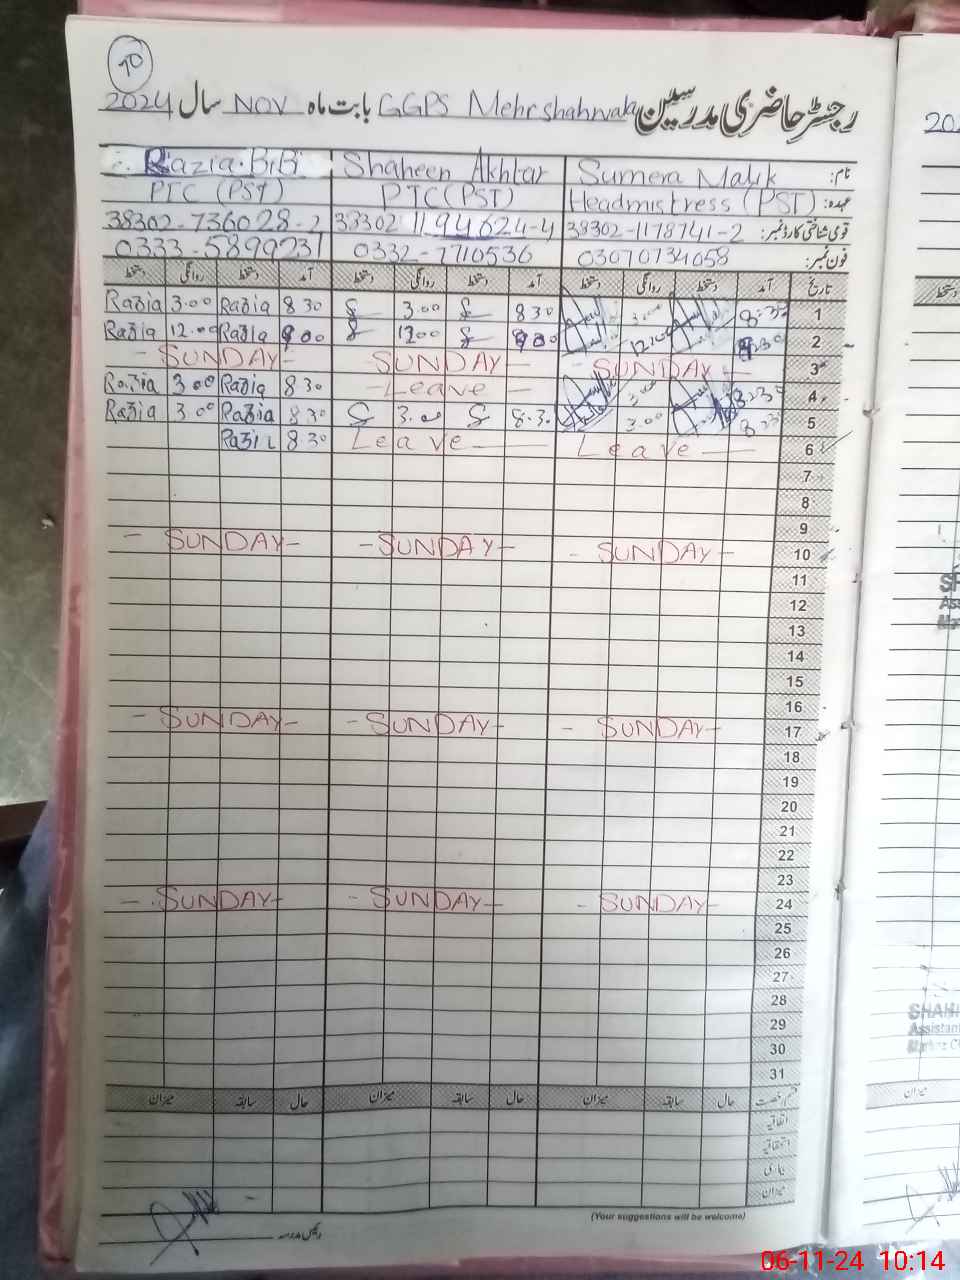 10
رجسٹر حاضری مدرسین GGPS Mehrshahwala بابت ماہ NOV سال 2024
نام: Sumera Malik Shaheen Akhtar Razia BiBi
عہدہ: Headmistress (PST) PTC (PST) PTC (PST)
قومی شناختی کارڈ نمبر: 38302-1178741-2 38302-1194624-4 38302-736028-2
فون نمبر: 03070734058 0332-7710536 0333-5899231
تاریخ آمد دستخط روانگی دستخط آمد دستخط روانگی دستخط آمد دستخط روانگی دستخط
1 8:30 3:00 8 30 3.00 8 30 Razia 3.00 Razia
2 12.00 1200 Razia 12.00 Razia
3 - SUNDAY - - SUNDAY - - SUNDAY -
4 8:30 3.00 - Leave - 8 30 Razia 3.00 Razia
5 8:30 3.00 8.30 3.00 8 30 Razia 3.00 Razia
6 Leave - Leave - 8 30 Razia
7
8
9
10 - SUNDAY - - SUNDAY - - SUNDAY -
11
12
13
14
15
16
17 - SUNDAY - - SUNDAY - - SUNDAY -
18
19
20
21
22
23
24 - SUNDAY - - SUNDAY - - SUNDAY -
25
26
27
28
29
30
31
قسم رخصت حال سابقہ میزان حال سابقہ میزان حال سابقہ میزان
اتفاقیہ
استحقاقیہ
بیماری
میزان
(Your suggestions will be welcome)
رئیس مدرسہ
202
دستخط
SHAHI
Assistant
میزان
06-11-24 10:14